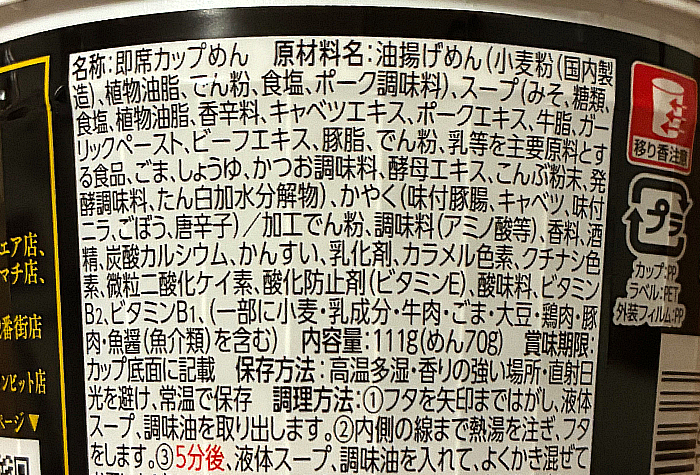 名称：即席カップめん　原材料名：油揚げめん（小麦粉（国内製
造）、植物油脂、でん粉、食塩、ポーク調味料）、スープ（みそ、糖類、
食塩、植物油脂、香辛料、キャベツエキス、ポークエキス、牛脂、ガー
リックペースト、ビーフエキス、豚脂、でん粉、乳等を主要原料とす
る食品、ごま、しょうゆ、かつお調味料、酵母エキス、こんぶ粉末、発
酵調味料、たん白加水分解物）、かやく（味付豚腸、キャベツ、味付
ニラ、ごぼう、唐辛子）／加工でん粉、調味料（アミノ酸等）、香料、酒
精、炭酸カルシウム、かんすい、乳化剤、カラメル色素、クチナシ色
素、微粒二酸化ケイ素、酸化防止剤（ビタミンE）、酸味料、ビタミン
B2、ビタミンB1、（一部に小麦・乳成分・牛肉・ごま・大豆・鶏肉・豚
肉・魚醤（魚介類）を含む）　内容量：111g（めん70g）　賞味期限：
カップ底面に記載　保存方法：高温多湿・香りの強い場所・直射日
光を避け、常温で保存　調理方法：①フタを矢印まではがし、液体
スープ、調味油を取り出します。②内側の線まで熱湯を注ぎ、フタ
をします。③5分後、液体スープ、調味油を入れて、よくかき混ぜて
移り香注意
プラ
カップ：PP
ラベル：PET
外装フィルム：PP
ェア店、
マチ店、
番街店
ンビット店
ページ▼